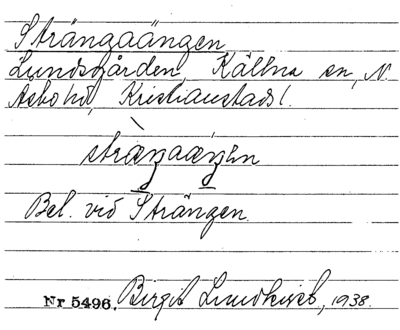 Strängaängen
Lundsgården, Källna sn, N.
Asbo hd, Kristianstads l.
stræŋaæŋən
Bel. vid Strängen.
Nr 5496. Birgit Lundkvist, 1938.